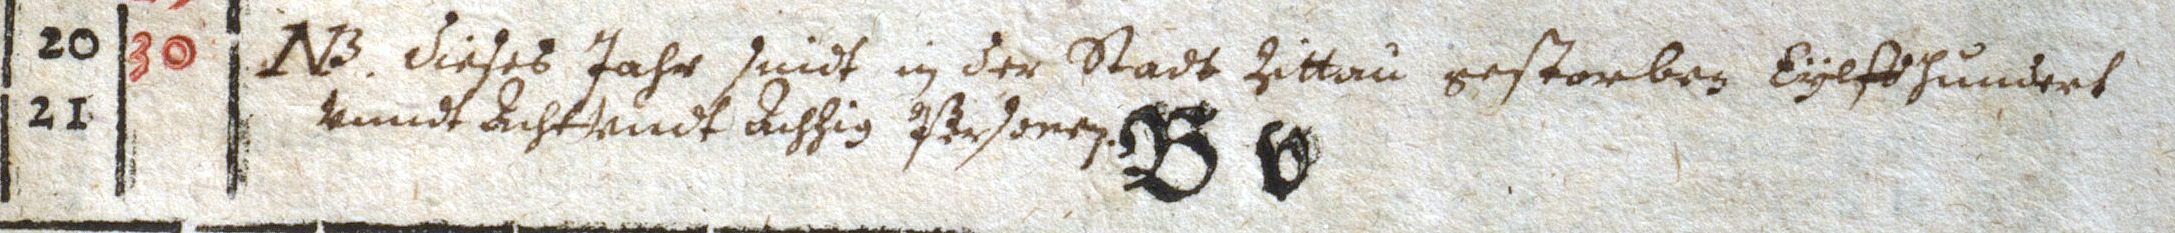 20 30 NB. dieses Jahr sindt in der Stadt Zittau gestorben Eylffhundert
21 vnndt Acht vndt Achzig Personen.
B v